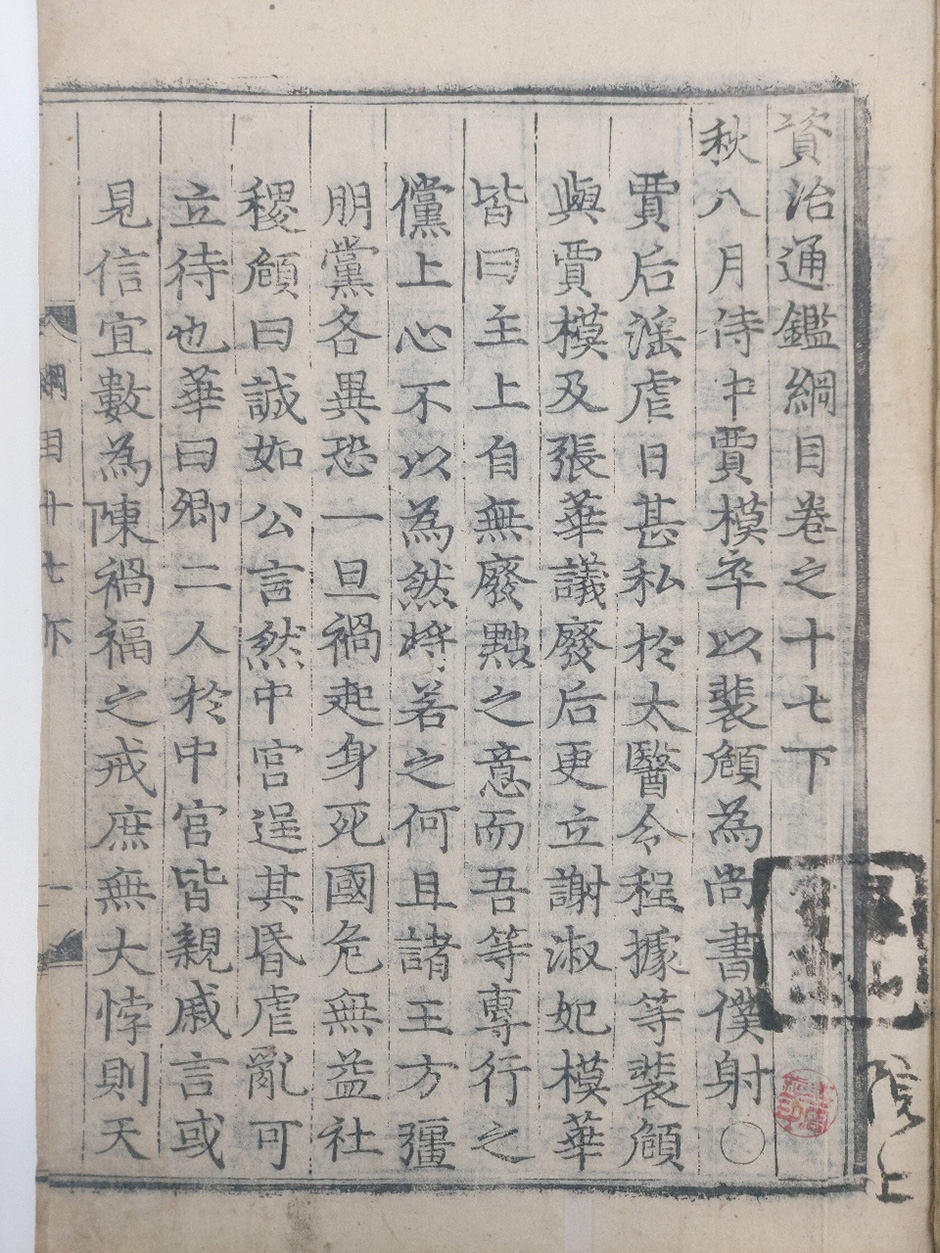 資治通鑑綱目卷之十七下
秋八月侍中賈模卒以裴頠為尚書僕射〇
賈后滛虐日甚私於太醫令程據等裴頠
與賈模及張華議廢后更立謝淑妃模華
皆曰主上自無廢黜之意而吾等專行之
儻上心不以為然將若之何且諸王方彊
朋黨各異恐一旦禍起身死國危無益社
稷頠曰誠如公言然中宮逞其昏虐亂可
立待也華曰卿二人於中宮皆親戚言或
見信宜數為陳禍福之戒庶無大悖則天
綱目廿七下
一
院上